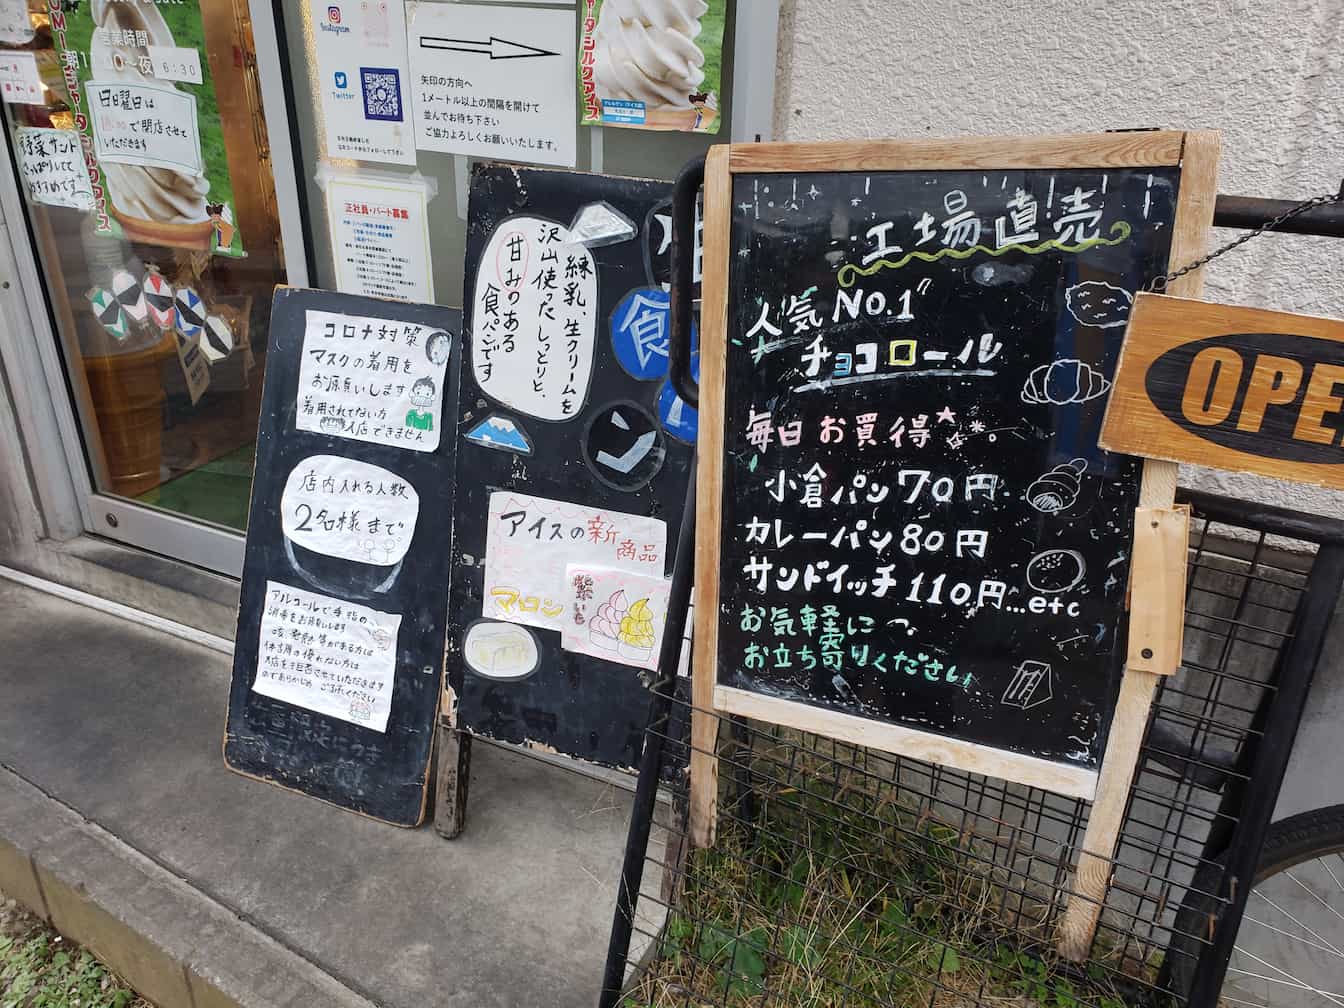 営業時間
6:30
日曜日は
で閉店させて
いただきます
野菜サンド
さっぱりしてて
おすすめです
Instagram
Twitter
矢印の方向へ
1メートル以上の間隔を開けて
並んでお待ち下さい
ご協力よろしくお願いいたします。
シルクアイス
正社員・パート募集
コロナ対策
マスクの着用を
お願いします
着用されてない方
入店できません
店内入れる人数
2名様まで
アルコールで手指の
消毒をお願いします
咳 発熱 等がある方は
体調の優れない方は
入店を拒否させていただきます
のであらかじめ ご了承ください
練乳、生クリームを
沢山使ったしっとりと、
甘みのある
食パンです
食
ン
アイスの新商品
マロン
紫いも
工場直売
人気No.1"
チョコロール
毎日お買得
小倉パン70円
カレーパン80円
サンドイッチ110円...etc
お気軽に
お立ち寄りください
OPE